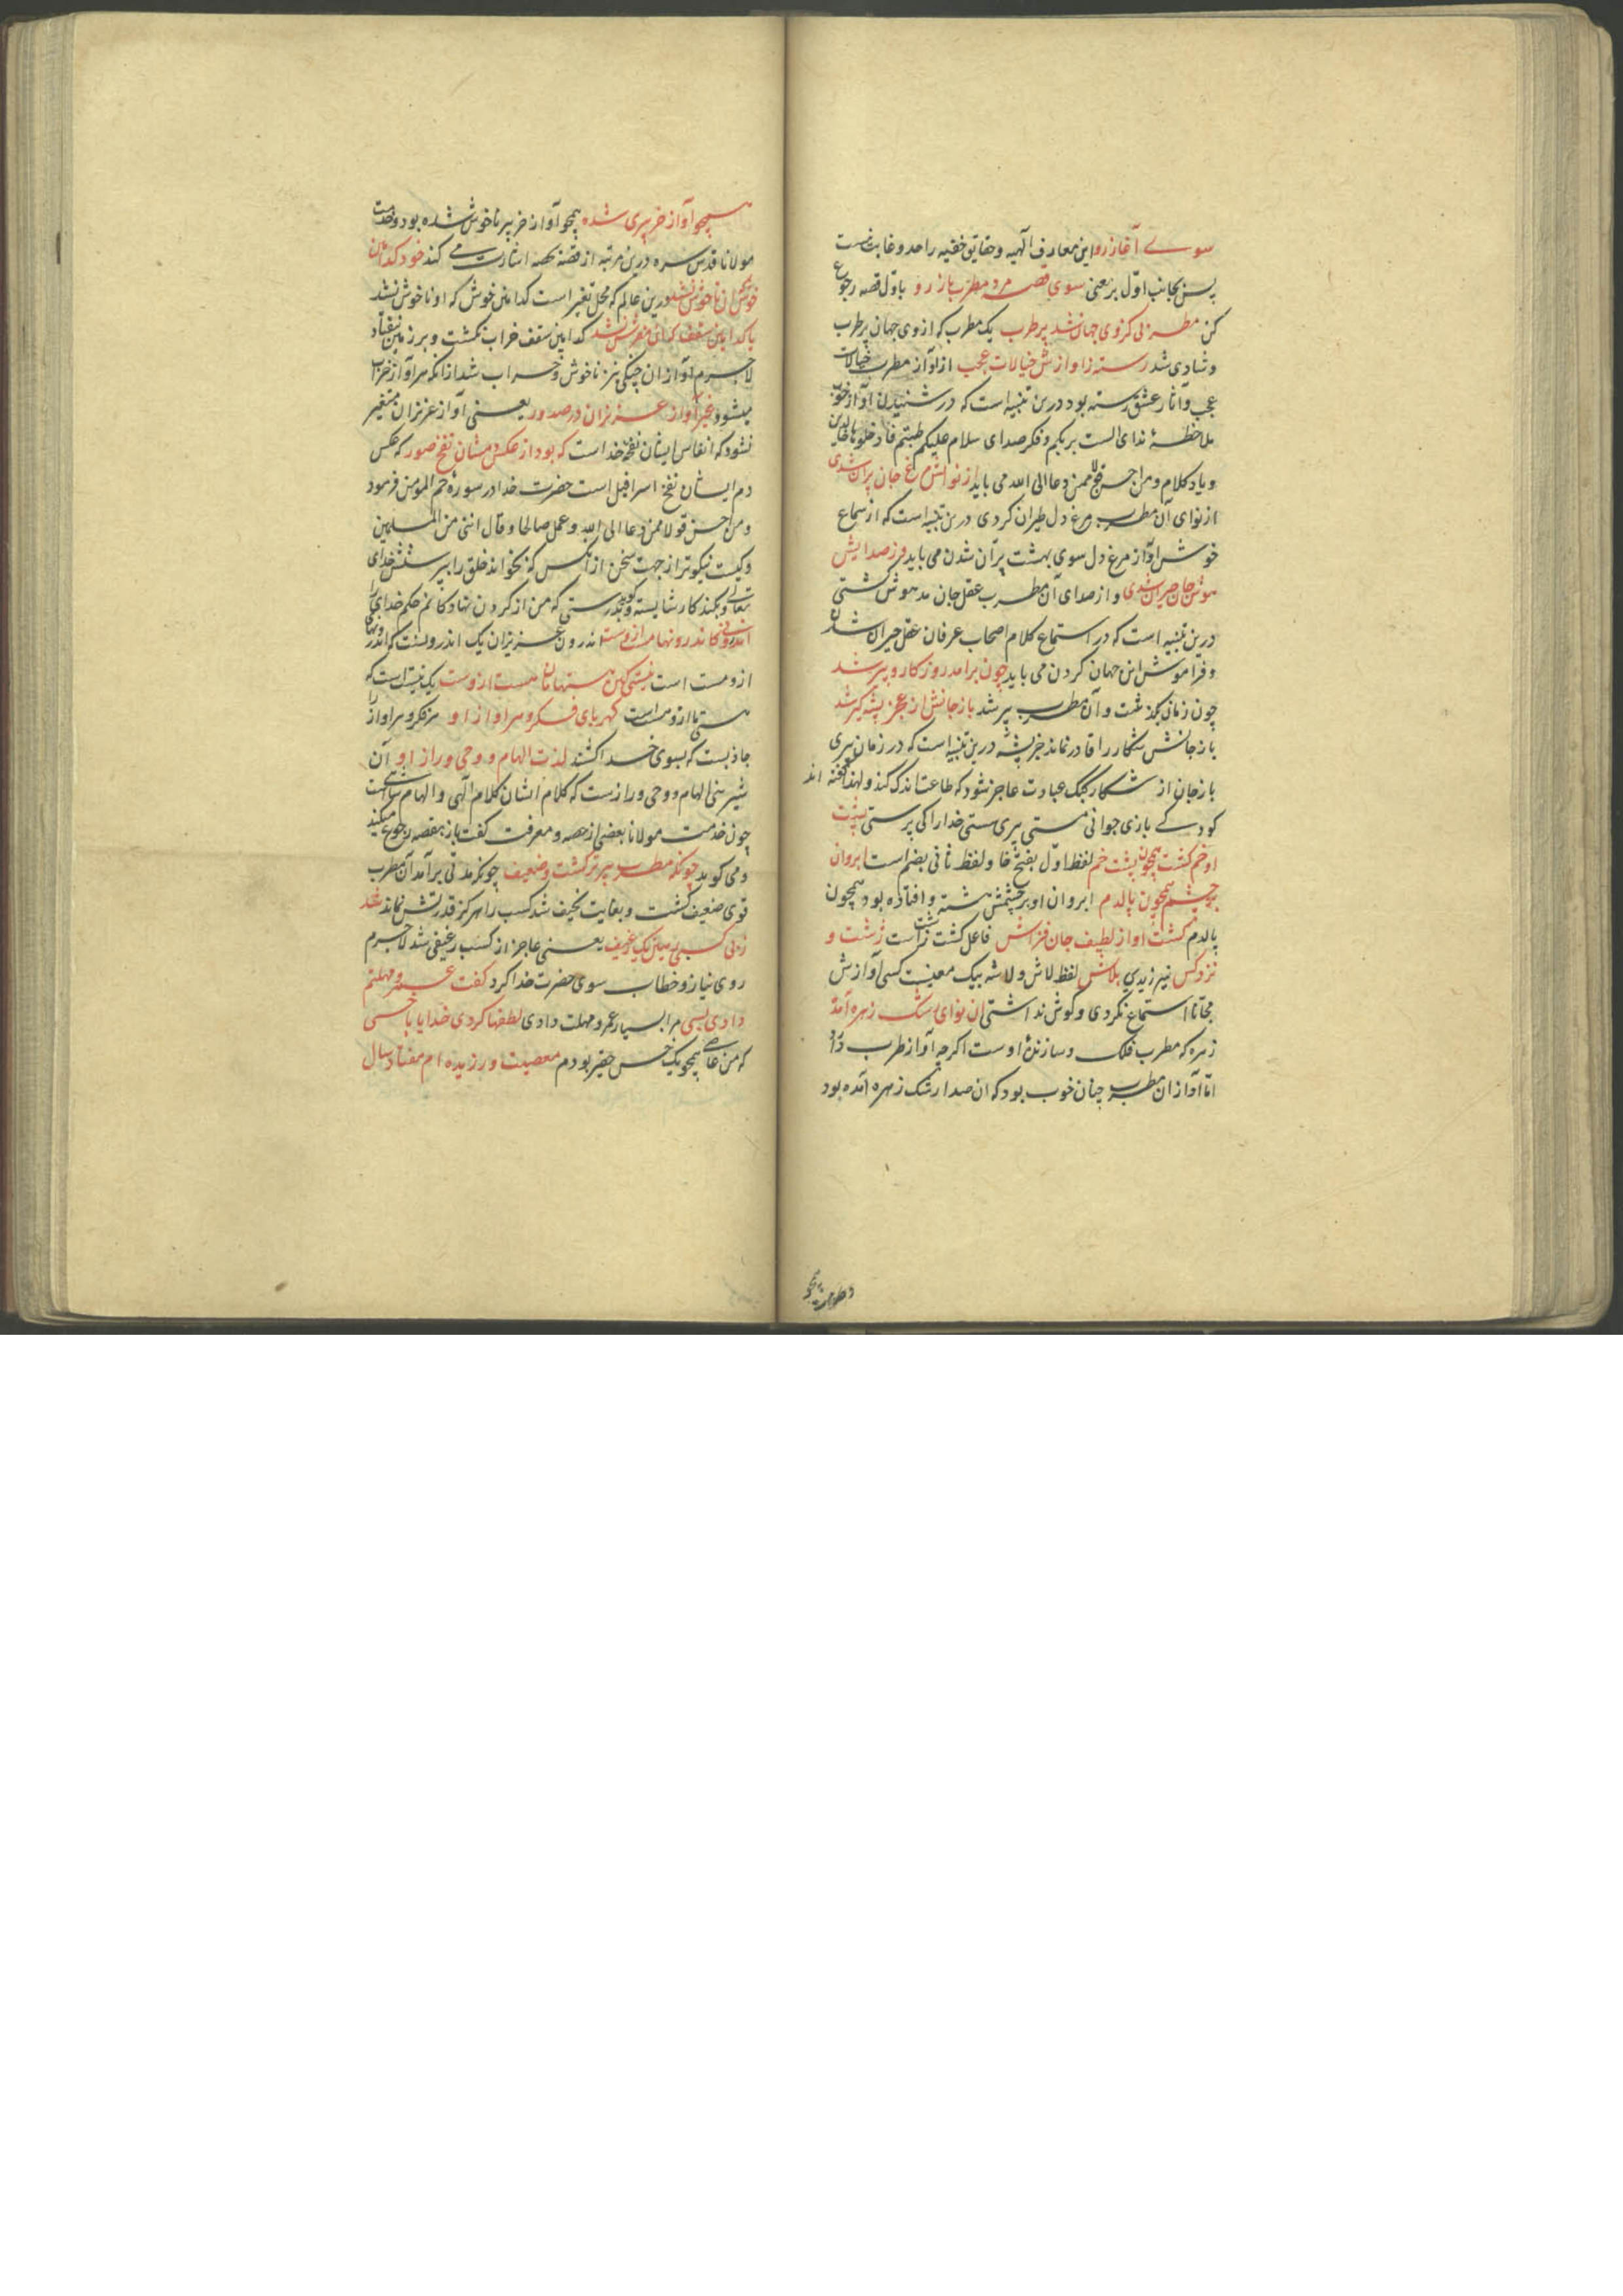 سوے آغاز رو این معارف الهیه و حقایق خفیه را حد و غایت نیست
پس بجانب اوّل بر یعنی سوی قصهٔ مرد مطرب باز رو باوّل قصه رجوع
کن مطربی کزوی جهان شد پر طرب یک مطرب که از وی جهان پر طرب
و شادی شد رسته ز اوازش خیالات عجب از آواز مطرب خیالات
عجب و آثار عشق رسته بود درین تنبیه است که در شنیدن آواز خوب
ملاحظهٔ ندای الست بربکم و فکر صدای سلام علیکم طبتم فادخلوها خالدین
و یاد کلام و من احسن قولا ممن دعا الی الله می باید از نوااش مرغ جان پران شدی
از نوای آن مطرب مرغ دل طیران کردی درین تنبیه است که از سماع
خوش آواز مرغ دل سوی بهشت پرّان شدن می باید وز صدایش
هوش جان حیران شدی و از صدای آن مطرب عقل جان مدهوش گشتی
درین تنبیه است که در استماع کلام اصحاب عرفان عقل حیران شدن
و فراموش این جهان کردن می باید چون برامد روزکار و پیر شد
چون زمان بگذشت و آن مطرب پیر شد باز جانش از عجز پشه گیر شد
باز جانش شکار را قادر نماند جز پشه درین تنبیه است که در زمان پیری
باز جان از شکار کبک عبادت عاجز شود که طاعت اندک کند و لهذا گفته اند
کودکے بازی جوانی مستی پیری سستی خدا را کی پرستی پشت
او خم کشت همچون پشت خم لفظ اوّل بفتح خا و لفظ ثانی بضم است ابروان
بر چشم همچون پالدم ابروان او بر چشمش هشته و افتاده بود همچون
پالدم کشت آواز لطیف جان فزاش فاعل کشت زشت است زشت و
نزد کس نیرزیدی بلاش لفظ لاش و لاشه بیک معنیست کسی آوازش
مجانا استماع نکردی و کوش نداشتی ان نوای رشک زهره آمده
زهره که مطرب فلک و سازندهٔ اوست اکرچه آواز طرب داد
امّا آواز ان مطرب چنان خوب بود که ان صدا رشک زهره آمده بود
همچو آواز خر پیری شده همچو آواز خر پیر ناخوش شده بود و خدمت
مولانا قدس سره درین مرتبه از قصه بحصه اشارت مے کند خود کدامین
خوش که ان ناخوش نشد درین عالم که محل تغیر است کدامین خوش که او ناخوش نشد
یا کدامین سقف کان مفرش نشد کدامین سقف خراب نکشت و بر زمین نیفتاد
لاجرم آواز ان چنکی نیز ناخوش و خراب شد از انکه هر آواز خراب
میشود غیر آواز عزیزان در صدور یعنی آواز عزیزان متغیر
نشود که انفاس ایشان نفخهٔ خداست که بود از عکس دمشان نفخ صور که عکس
دم ایشان نفخ اسرافیل است حضرت خدا در سورهٔ حم المؤمن فرمود
و من احسن قولا ممن دعا الی الله و عمل صالحا و قال اننی من المسلمین
و کیست نیکوتر از جهت سخن از آنکس که بخواند خلق را بپرستش خدای
تعالی و بکند کار شایسته و کوید بدرستی که من از کردن نهادکانم حکم خدای را
اندرونی کاندرونها مست ازوست اندرون عزیزان یک اندرونست که اندرونها
ازو مست است نیستی کین هستهامان هست ازوست یک نیست است که
هستی ما ازو هست است کهربای فکر و هر آواز او هر فکر و هر آواز را
جاذبست که بسوی خدا کشند لذت الهام و وحی و راز او آن
شیرینی الهام و وحی و رازست که کلام ایشان کلام الهی و الهام است
چون خدمت مولانا بعضی از حصه و معرفت کفت باز بقصه رجوع میکند
و می کوید چونکه مطرب پیرتر کشت و ضعیف چونکه مدتی برآمد آن مطرب
قوی ضعیف کشت و بغایت نحیف شد کسب را هرکز قدرتش نماند شد
ز بی کسبی رهین یک رغیف یعنی عاجز از کسب رغیفی شد لاجرم
روی نیاز و خطاب سوی حضرت خدا کرد کفت عمر و مهلتم
دادی بسی مرا بسیار عمر و مهلت دادی لطفها کردی خدایا با خسی
که من عاصے همچو یک خس حقیر بودم معصیت ورزیده ام هفتاد سال